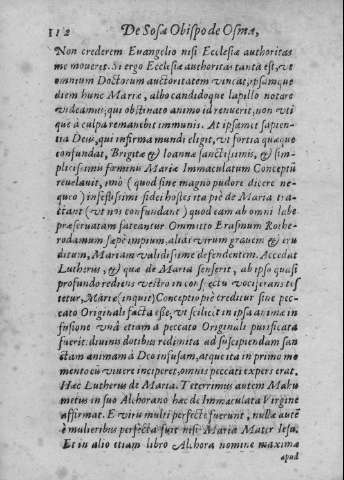 112 De Sosa Obispo de Osma,
Non crederem Euangelio nisi Ecclesiæ authoritas
me moueret. Si ergo Ecclesiæ authoritas tanta est, vt
omnium Doctorum auctoritatem vincat, ipsamque
diem hunc Mariæ, albo candidoque lapillo notare
videamus; qui obstinato animo id renuerit, non vti
que à culpa remanebit immunis. At ipsamet sapien-
tia Deus, qui infirma mundi eligit, vt fortia quæque
confundat, Brigitæ & Ioannæ sanctissimis, & sim-
plicissimis fæminis Mariæ Immaculatum Conceptũ
reuelauit, imò (quod sine magno pudore dicere ne-
queo) infestissimi fidei hostes ita piè de Maria tra-
ctant (vt nos confundant) quod eam ab omni labe
præseruatam fateantur. Ommitto Erasmum Rothe-
rodamum sæpè impium, aliàs virum grauem & eru
ditum, Mariam validissimè defendentem. Accedat
Lutherus, & quæ de Maria senserit, ab ipso quasi
profundo rediens vestro in conspectu vociferans tes
tetur, Mariæ (inquit) Conceptio piè creditur sine pec-
cato Originali facta esse, vt scilicet in ipsa animæ in
fusione vnà etiam à peccato Originali purificata
fuerit. diuinis dotibus redimita ad suscipiendam san
ctam animam à Deo infusam, atque ita in primo mo
mento cũ viuere inciperet, omnis peccati expers erat.
Hæc Lutherus de Maria. Teterrimus autem Mahu
metus in suo Alchorano hæc de Immaculata Virgine
affirmat. E viris multi perfecti fuerunt, nulla autẽ
è mulieribus perfecta fuit nisi Maria Mater Iesu.
Et in alio etiam libro Alchora nomine maxima
apud